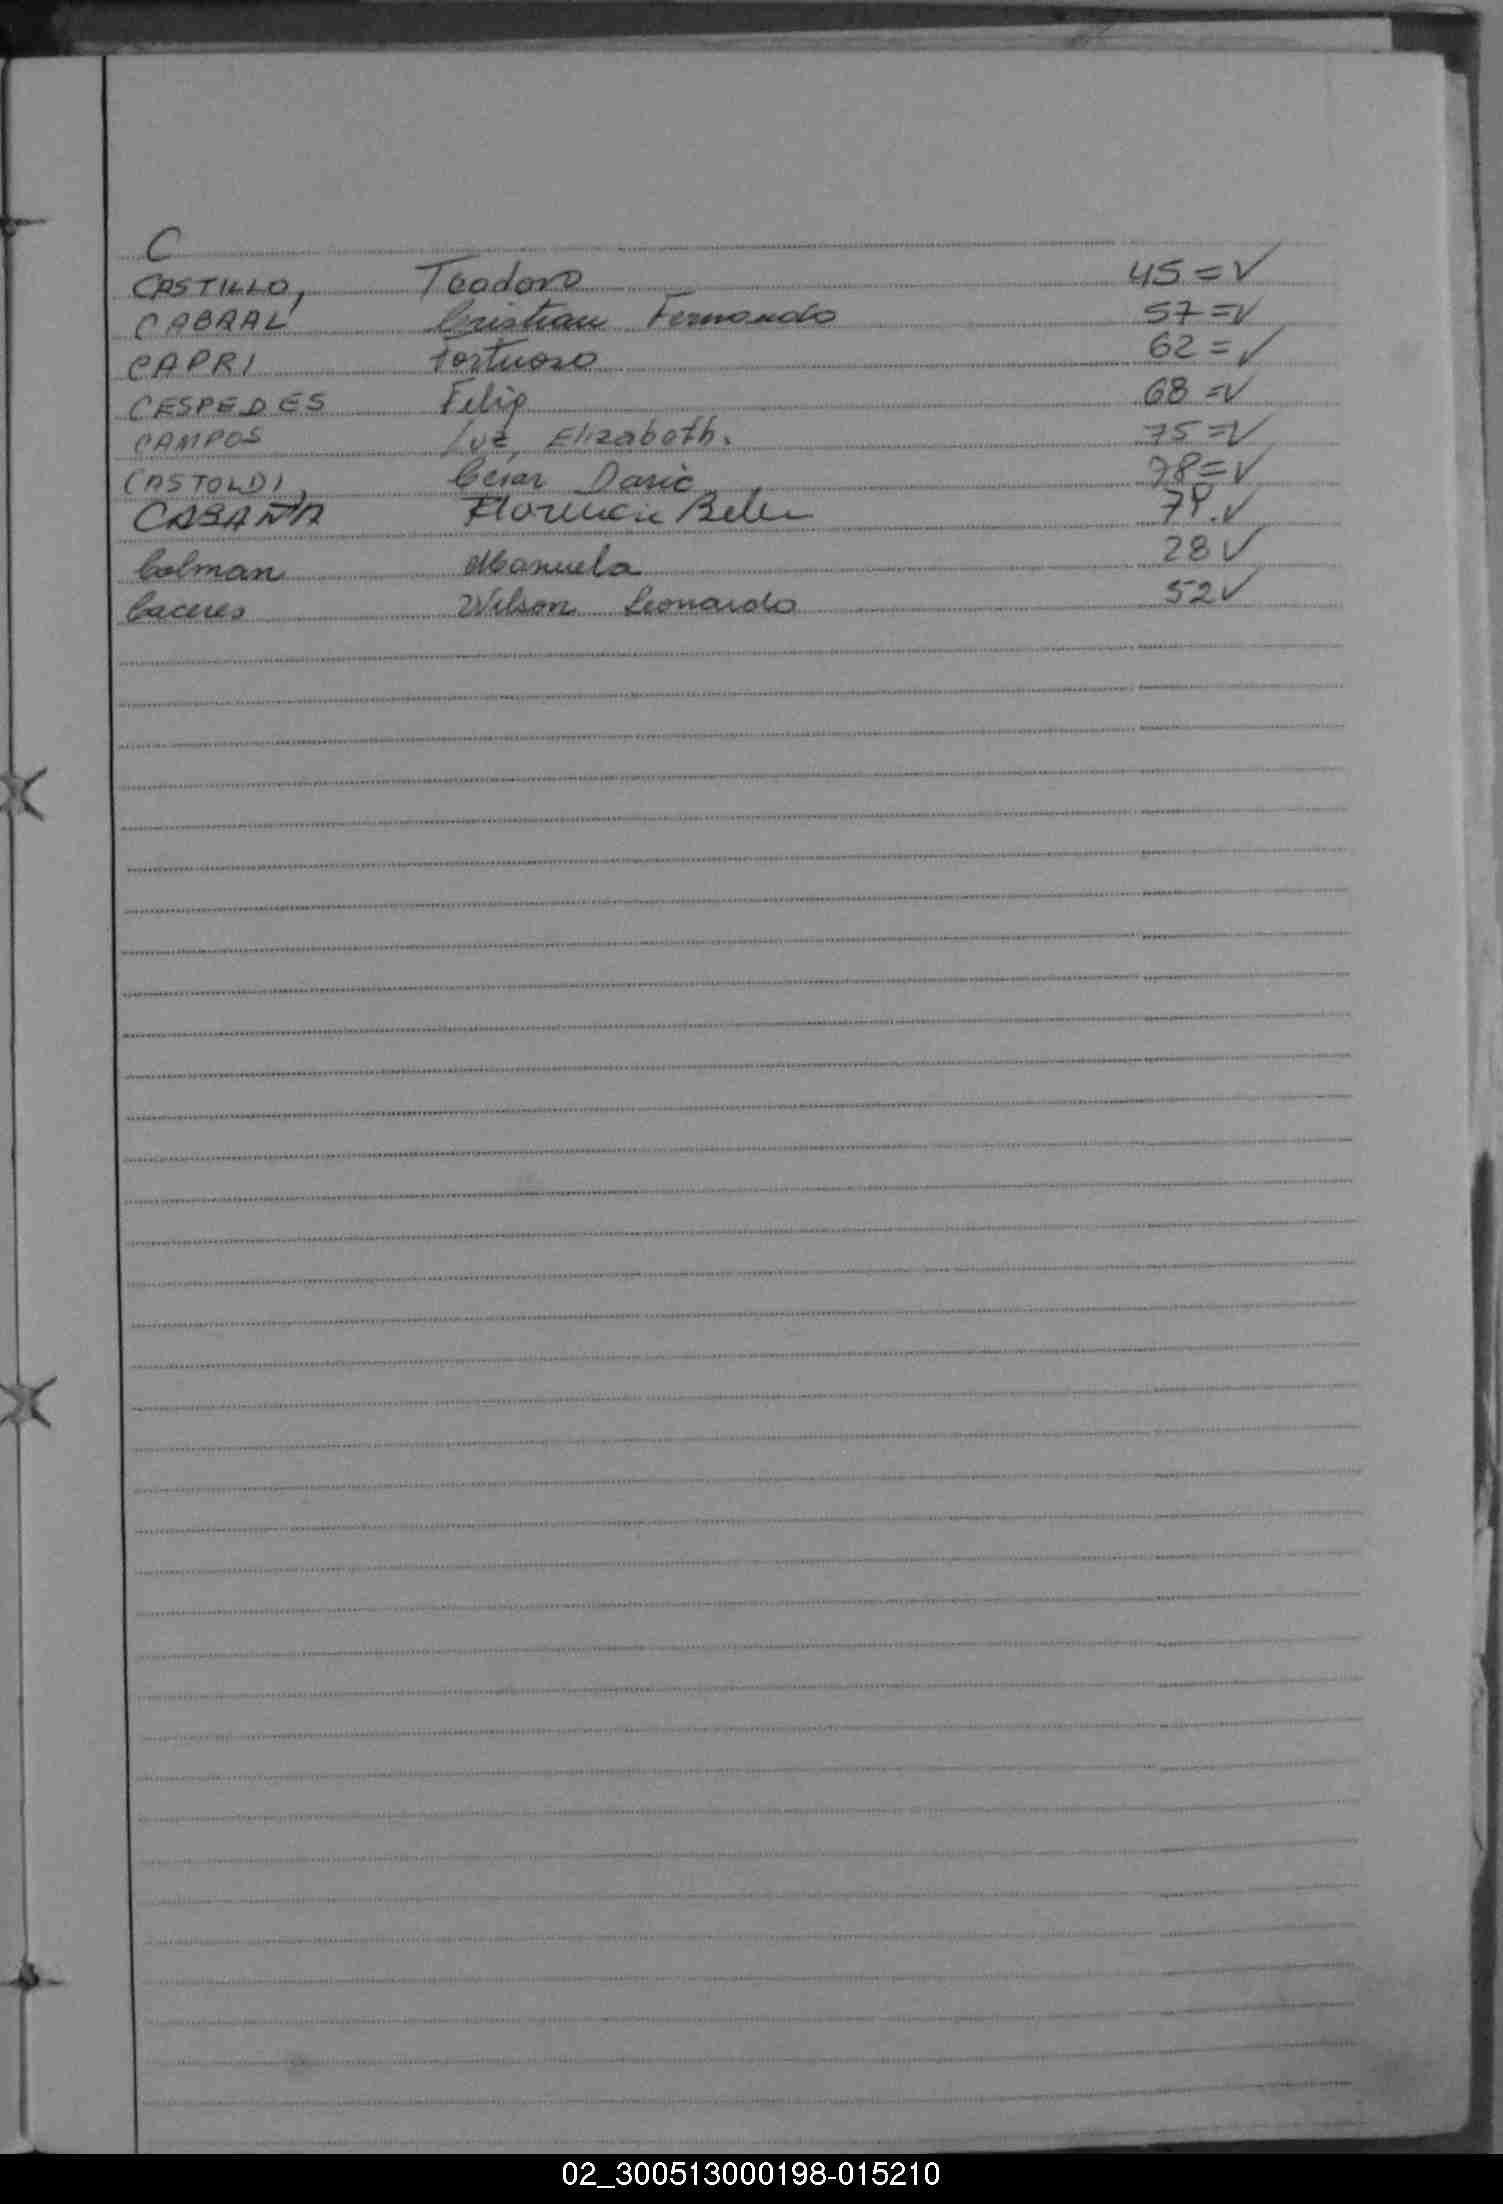 C
CASTILLO, Teodoro 45=✓
CABRAL Cristian Fernando 57=✓
CAPRI Fortuoso 62=✓
CESPEDES Felip 68=✓
CAMPOS Luz Elizabeth. 75=✓
CASTOLDI, César Dario 78=✓
CABAÑA Florencia Belen 79.✓
Colman Manuela 28✓
Caceres Wilson Leonardo 52✓
02_300513000198-015210